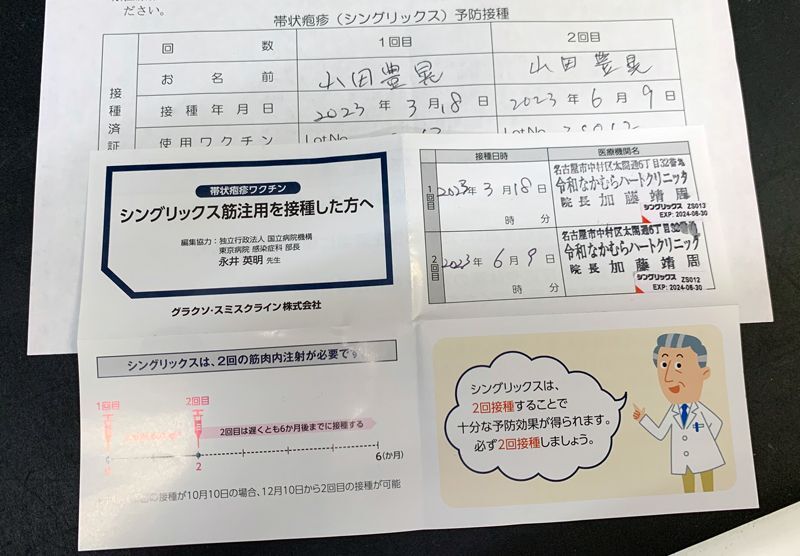 ださい。
帯状疱疹（シングリックス）予防接種
回 数 1回目 2回目
お名前 山田豊晃 山田豊晃
接種年月日 2023年3月18日 2023年6月9日
使用ワクチン Lot No. Lot No.
接種済証
帯状疱疹ワクチン
シングリックス筋注用を接種した方へ
編集協力：独立行政法人 国立病院機構
東京病院 感染症科 部長
永井 英明 先生
グラクソ・スミスクライン株式会社
接種日時 医療機関名
1回目 2023年3月18日
時 分
名古屋市中村区太閤通6丁目32番地
令和なかむらハートクリニック
院長 加藤靖周
シングリックス ZS013
EXP: 2024-06-30
2回目 2023年6月9日
時 分
名古屋市中村区太閤通6丁目32番地
令和なかむらハートクリニック
院長 加藤靖周
シングリックス ZS012
EXP: 2024-06-30
シングリックスは、2回の筋肉内注射が必要です
1回目 2回目
2回目は遅くとも6か月後までに接種する
0 2 6(か月)
の接種が10月10日の場合、12月10日から2回目の接種が可能
シングリックスは、
2回接種することで
十分な予防効果が得られます。
必ず2回接種しましょう。